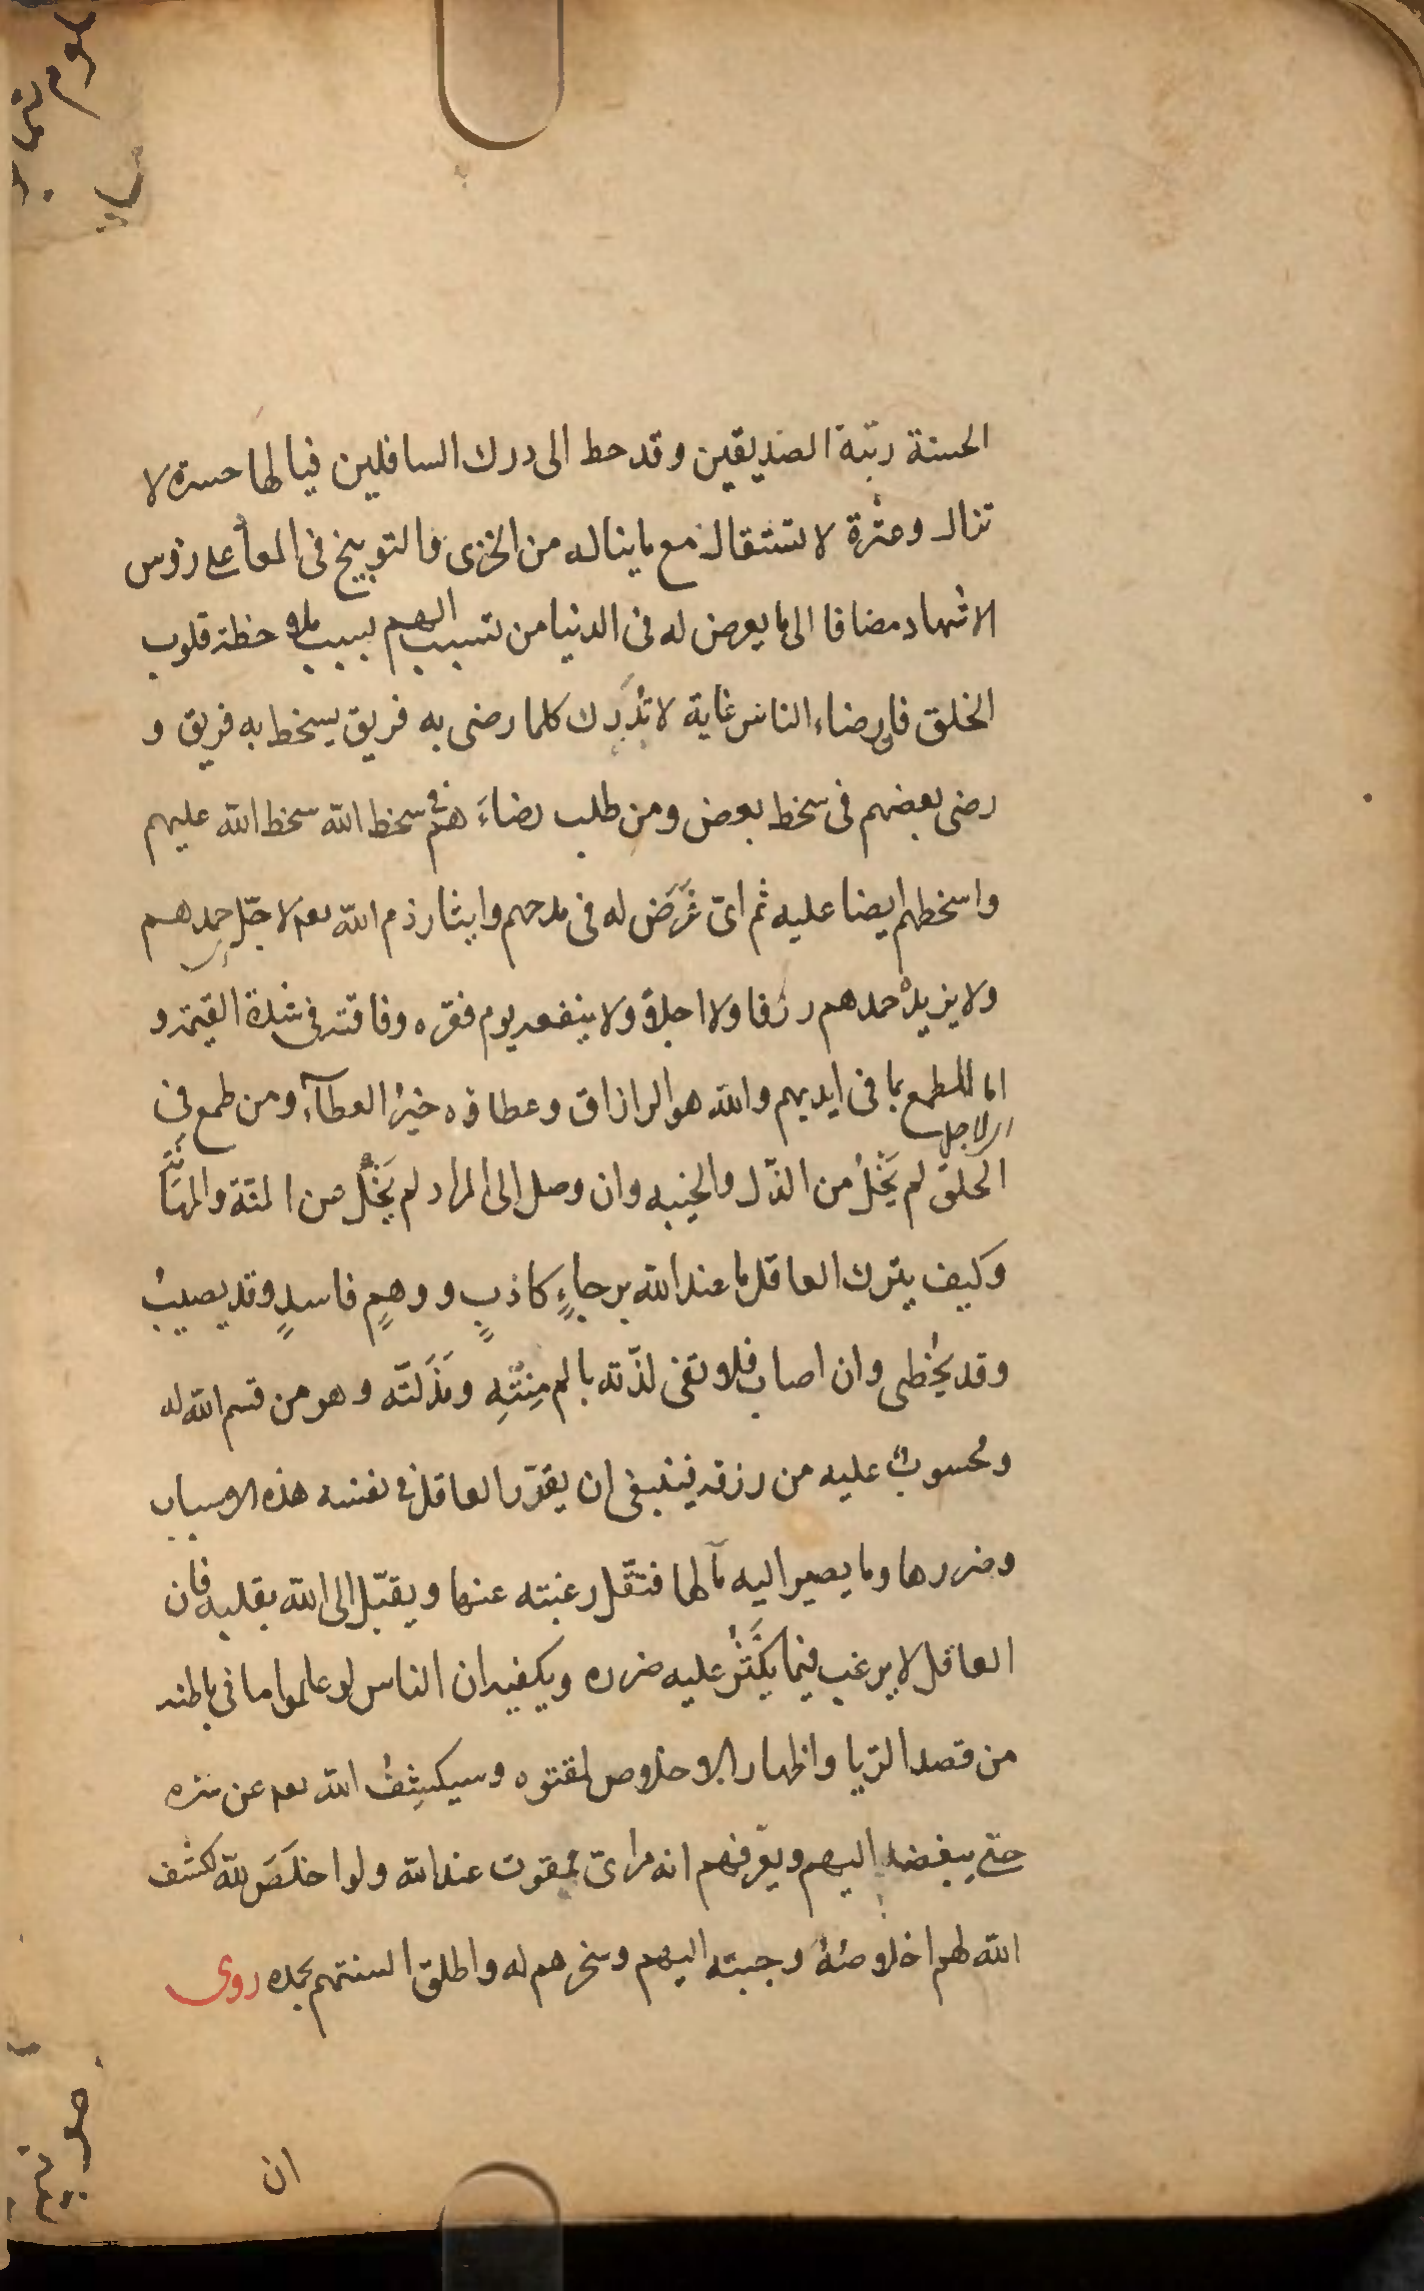 الحسنة رتبة الصديقين وقد حط الى درك السافلين فيا لها حسرة لا
تزال وعثرة لا تستقال مع ما يناله من الخزى والتوبيخ فى المعأ على رؤس
الاشهاد مضافا الى ما يعرض له فى الدنيا من تسبب الهم بسبب ملاحظة قلوب
الخلق فان رضاء الناس غاية لا تُدرَك كلما رضى به فريق يسخط به فريق و
رضى بعضهم فى سخط بعض ومن طلب رضاءَهم فى سخط الله سخط الله عليهم
واسخطهم ايضا عليه ثم اىّ غَرَض له فى مدحهم وايثار ذم الله تعه لاجل حمدهم
ولا يزيدُ حمدهم رزقا ولا اجلاً ولا ينفعه يوم فقره وفاقته فى شدة القيمة و
اما للطمع بما فى ايديهم والله هو الرازاق وعطاؤه خيرُ العطآء ومن طمع فى
اى لاجل
الخلق لم يَخْلُ من الذّل والخيبه وان وصل الى المراد لم يَخْلُ عن المنّة والمهَانَة
وكيف يترك العاقل ما عند الله برجاءٍ كاذبٍ ووهمٍ فاسدٍ وقد يصيبُ
وقد يُخطى وان اصاب فلا تفى لذّته بالم مِنّتِهِ ومَذَلّته وهو من قسم الله له
ومحسوبٌ عليه من رزقه فينبغى ان يقدّر العاقل فى نفسه هذه الاسباب
وضررها وما يصير اليه مآلها فتقّل رغبته عنها ويقبّل الى الله بقلبه فان
العاقل لا يرغب فيما يَكْثُرُ عليه ضرره ويكفيه ان الناس لو علموا ما فى باطنه
من قصد الرّيا واظهار الاخلاص لمقتوه وسيكشِفُ الله تعه عن سّره
حتى يبغضه اليهم ويعّرفهم انه مراىّ ممقوت عند الله ولو اخلَصَ لله لكشف
الله لهم اخلاصَهُ وحببته اليهم وسخرهم له واطلق السنتهم بحمده روى
ان